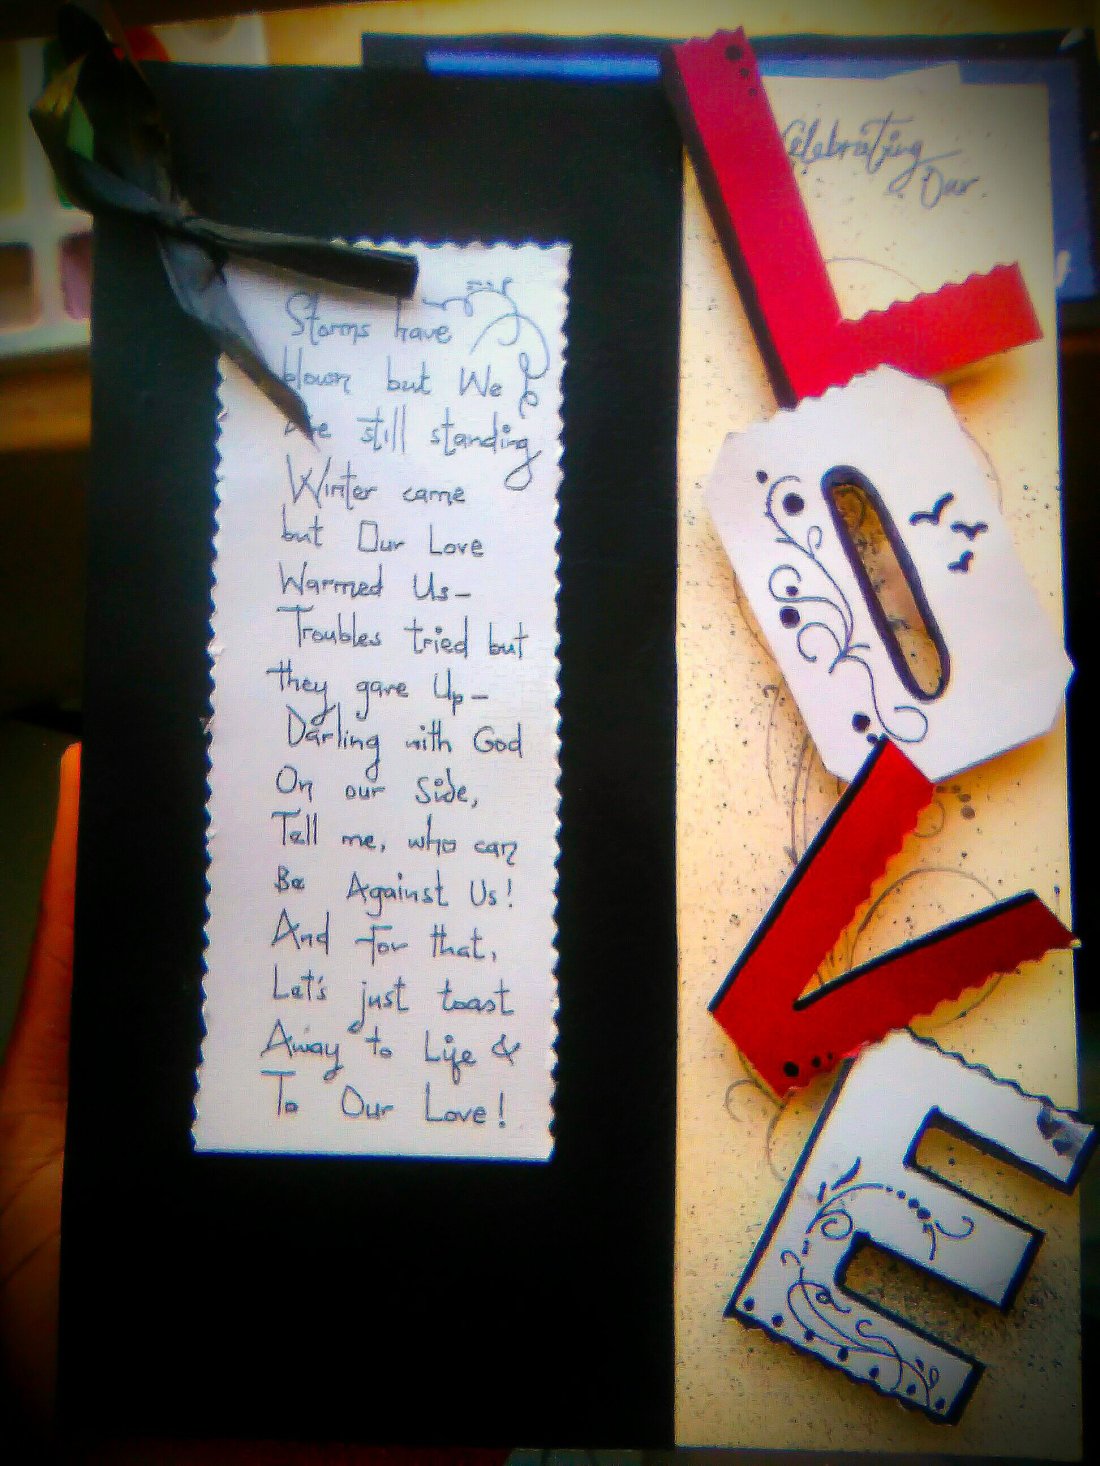 Storms have
blown but We
Are still standing
Winter came
but Our Love
Warmed Us-
Troubles tried but
they gave Up-
Darling with God
On our Side,
Tell me, who can
Be Against Us!
And for that,
Let's just toast
Away to Life &
To Our Love!
Celebrating
Our
LOVE